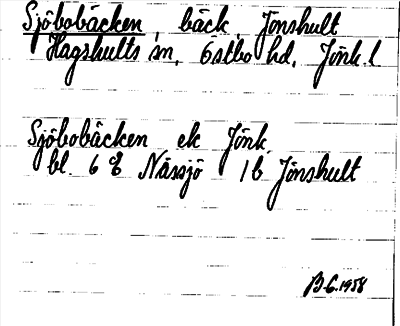 Sjöbobäcken, bäck, Jönshult
Hagshults sn, Östbo hd, Jönk. l
Sjöbobäcken ek Jönk.
bl. 6 8 Nässjö 1 b Jönshult
B.G. 1958